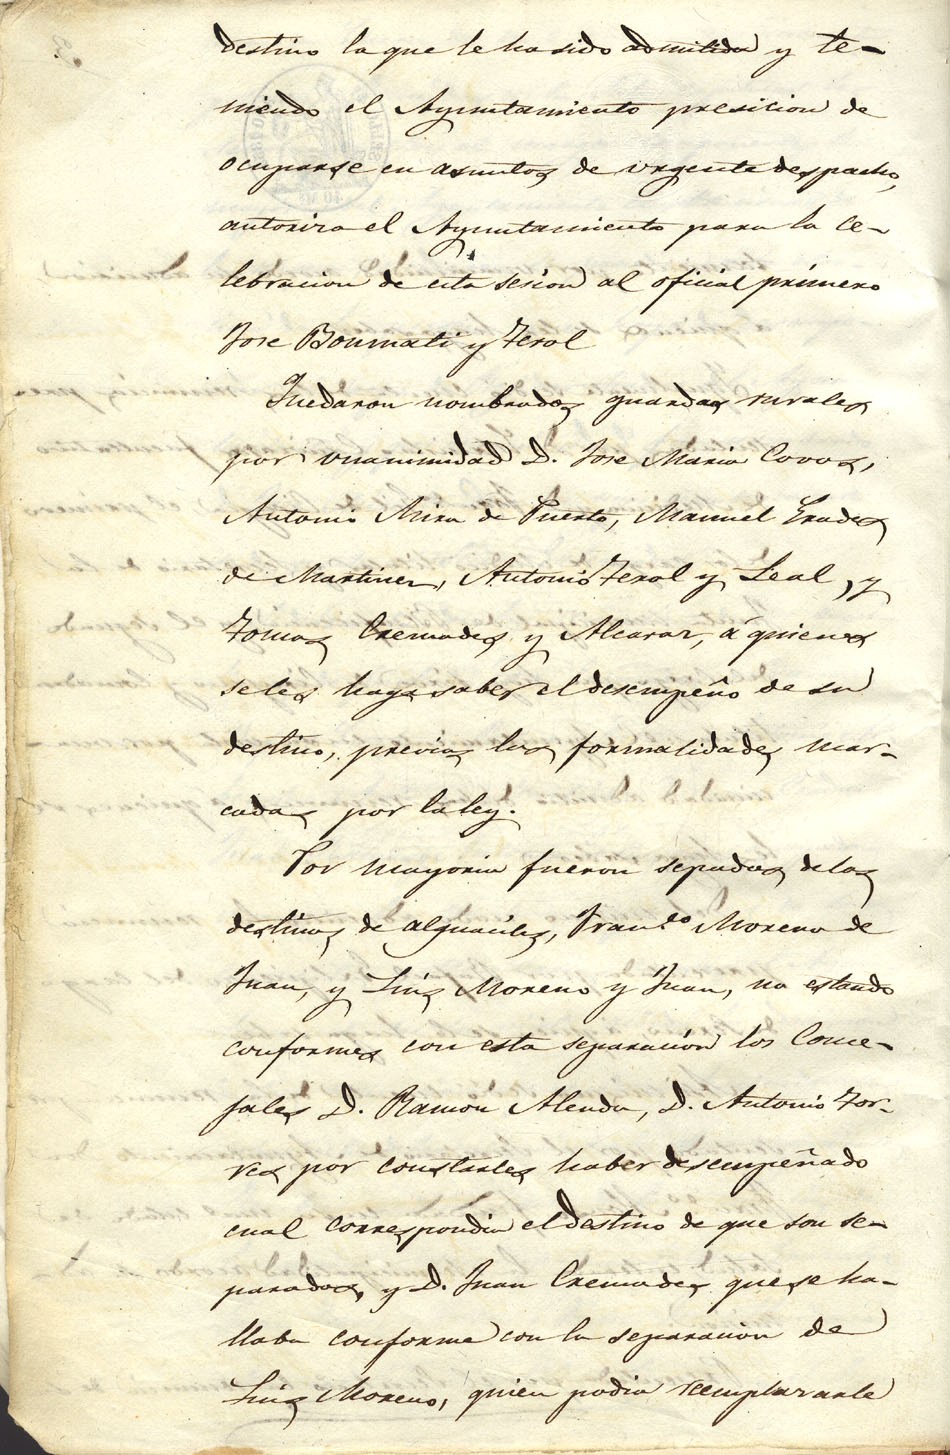 destino la que le ha sido admitida y te-
niendo el Ayuntamiento presicion de
ocuparse en asuntos de urgente despacho,
autoriza el Ayuntamiento para la ce-
lebracion de esta sesion al oficial primero
Jose Boumati y Terol
Quedaron nombrados guardas rurales
por unanimidad D. Jose Maria Covos,
Antonio Mira de Puerto, Manuel Prades
de Martinez, Antonio Terol y Leal, y
Tomas Cremades y Alcaraz, á quienes
se les haga saber el desempeño de su
destino, previas las formalidades mar-
cadas por la ley.
Por mayoria fueron sepados de los
destinos de alguaciles, Franco. Moreno de
Juan, y Luis Moreno y Juan, no estando
conformes con esta separacion los Conce-
jales D. Ramon Alenda, D. Antonio Tor-
res por constarles haber desempeñado
cual correspondia el destino de que son se-
parados, y D. Juan Cremades que se ha-
llaba conforme con la separacion de
Luis Moreno, quien podia reemplazarle